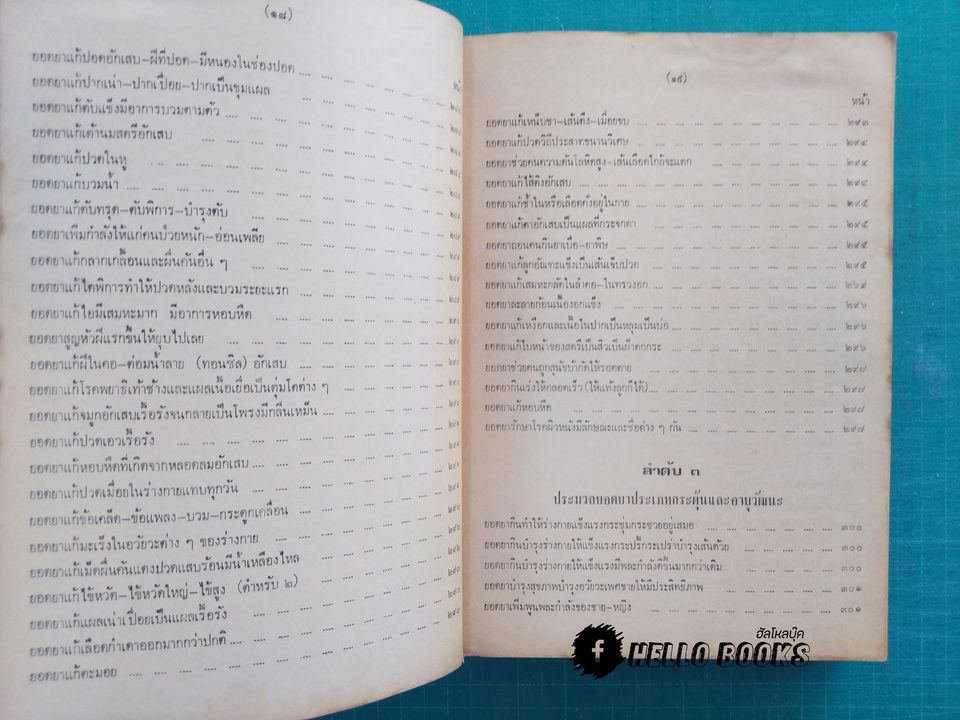 (๑๘)
หน้า
ยอดยาแก้ปอดอักเสบ-ฝีที่ปอด-มีหนองในช่องปอด
ยอดยาแก้ปากเน่า-ปากเปื่อย-ปากเป็นขุมแผล
ยอดยาแก้ตับแข็งมีอาการบวมตามตัว
ยอดยาแก้เต้านมสตรีอักเสบ
ยอดยาแก้ปวดในหู
ยอดยาแก้บวมน้ำ
ยอดยาแก้ตับทรุด-ตับพิการ-บำรุงตับ
ยอดยาเพิ่มกำลังให้แก่คนป่วยหนัก-อ่อนเพลีย
ยอดยาแก้กลากเกลื้อนและผื่นคันอื่น ๆ
ยอดยาแก้ไตพิการทำให้ปวดหลังและบวมระยะแรก
ยอดยาแก้ไอมีเสมหะมาก มีอาการหอบหืด
ยอดยาสูญหัวฝีแรกขึ้นให้ยุบไปเลย
ยอดยาแก้ฝีในคอ-ต่อมน้ำลาย (ทอนซิล) อักเสบ
ยอดยาแก้โรคพยาธิเท้าช้างและแผลเนื้อเยื่อเป็นตุ่มโตต่าง ๆ
ยอดยาแก้จมูกอักเสบเรื้อรังจนกลายเป็นโพรงมีกลิ่นเหม็น
ยอดยาแก้ปวดเอวเรื้อรัง
ยอดยาแก้หอบหืดที่เกิดจากหลอดลมอักเสบ
ยอดยาแก้ปวดเมื่อยในร่างกายแทบทุกวัน
ยอดยาแก้ข้อเคล็ด-ข้อแพลง-บวม-กระดูกเคลื่อน
ยอดยาแก้มะเร็งในอวัยวะต่าง ๆ ของร่างกาย
ยอดยาแก้เม็ดผื่นคันแดงปวดแสบร้อนมีน้ำเหลืองไหล
ยอดยาแก้ไข้หวัด-ไข้หวัดใหญ่-ไข้สูง (ตำหรับ ๒)
ยอดยาแก้แผลเน่าเปื่อยเป็นแผลเรื้อรัง
ยอดยาแก้เลือดกำเดาออกมากกว่าปกติ
ยอดยาแก้ตะมอย
(๑๙)
หน้า
ยอดยาแก้เหน็บชา-เส้นตึง-เมื่อยขบ .... ๒๙๓
ยอดยาแก้ปวดวิถีประสาทขนานวิเศษ .... ๒๙๔
ยอดยาช่วยคนความดันโลหิตสูง-เส้นเลือดใกล้จะแตก .... ๒๙๔
ยอดยาแก้ไส้ติ่งอักเสบ .... ๒๙๔
ยอดยาแก้ช้ำในหรือเลือดคั่งอยู่ในกาย .... ๒๙๕
ยอดยาแก้ตาอักเสบเป็นแผลที่กระจกตา .... ๒๙๕
ยอดยาถอนคนกินยาเบื่อ-ยาพิษ .... ๒๙๕
ยอดยาแก้ลูกอัณฑะแข็งเป็นเส้นเจ็บปวด .... ๒๙๕
ยอดยาแก้เสมหะกลัดในลำคอ-ในทรวงอก .... ๒๖๙
ยอดยาละลายก้อนเนื้องอกแข็ง .... ๒๙๖
ยอดยาแก้เหงือกและเนื้อในปากเป็นหลุมเป็นบ่อ .... ๒๙๖
ยอดยาแก้ใบหน้าของสตรีเป็นสิวเป็นฝ้าตกกระ .... ๒๙๖
ยอดยาช่วยคนถูกสุนัขบ้ากัดให้รอดตาย .... ๒๙๗
ยอดยากินเร่งให้คลอดเร็ว (ให้แท้งลูกก็ได้) .... ๒๙๗
ยอดยาแก้หอบหืด .... ๒๙๗
ยอดยารักษาโรคผิวหนังมีลักษณะและชื่อต่าง ๆ กัน .... ๒๙๗
ลำดับ ๓
ประมวลยอดยาประเภทกระตุ้นและอายุวัฒนะ
ยอดยากินทำให้ร่างกายแข็งแรงกระชุ่มกระชวยอยู่เสมอ .... ๓๐๐
ยอดยากินบำรุงร่างกายให้แข็งแรงกระปรี้กระเปร่าบำรุงเส้นด้วย .... ๓๐๐
ยอดยากินบำรุงร่างกายให้แข็งแรงมีพละกำลังดีขึ้นมากกว่าเดิม .... ๓๐๐
ยอดยาบำรุงสุขภาพบำรุงอวัยวะเพศชายให้มีประสิทธิภาพ .... ๓๐๑
ยอดยาเพิ่มพูนพละกำลังของชาย-หญิง .... ๓๐๑
ฮัลโหลบุ๊ค
HELLO BOOKS